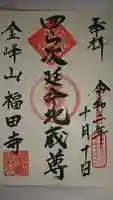 奉拝
令和二年
十月十日
四ツ次延命地蔵尊
金峰山 福田寺